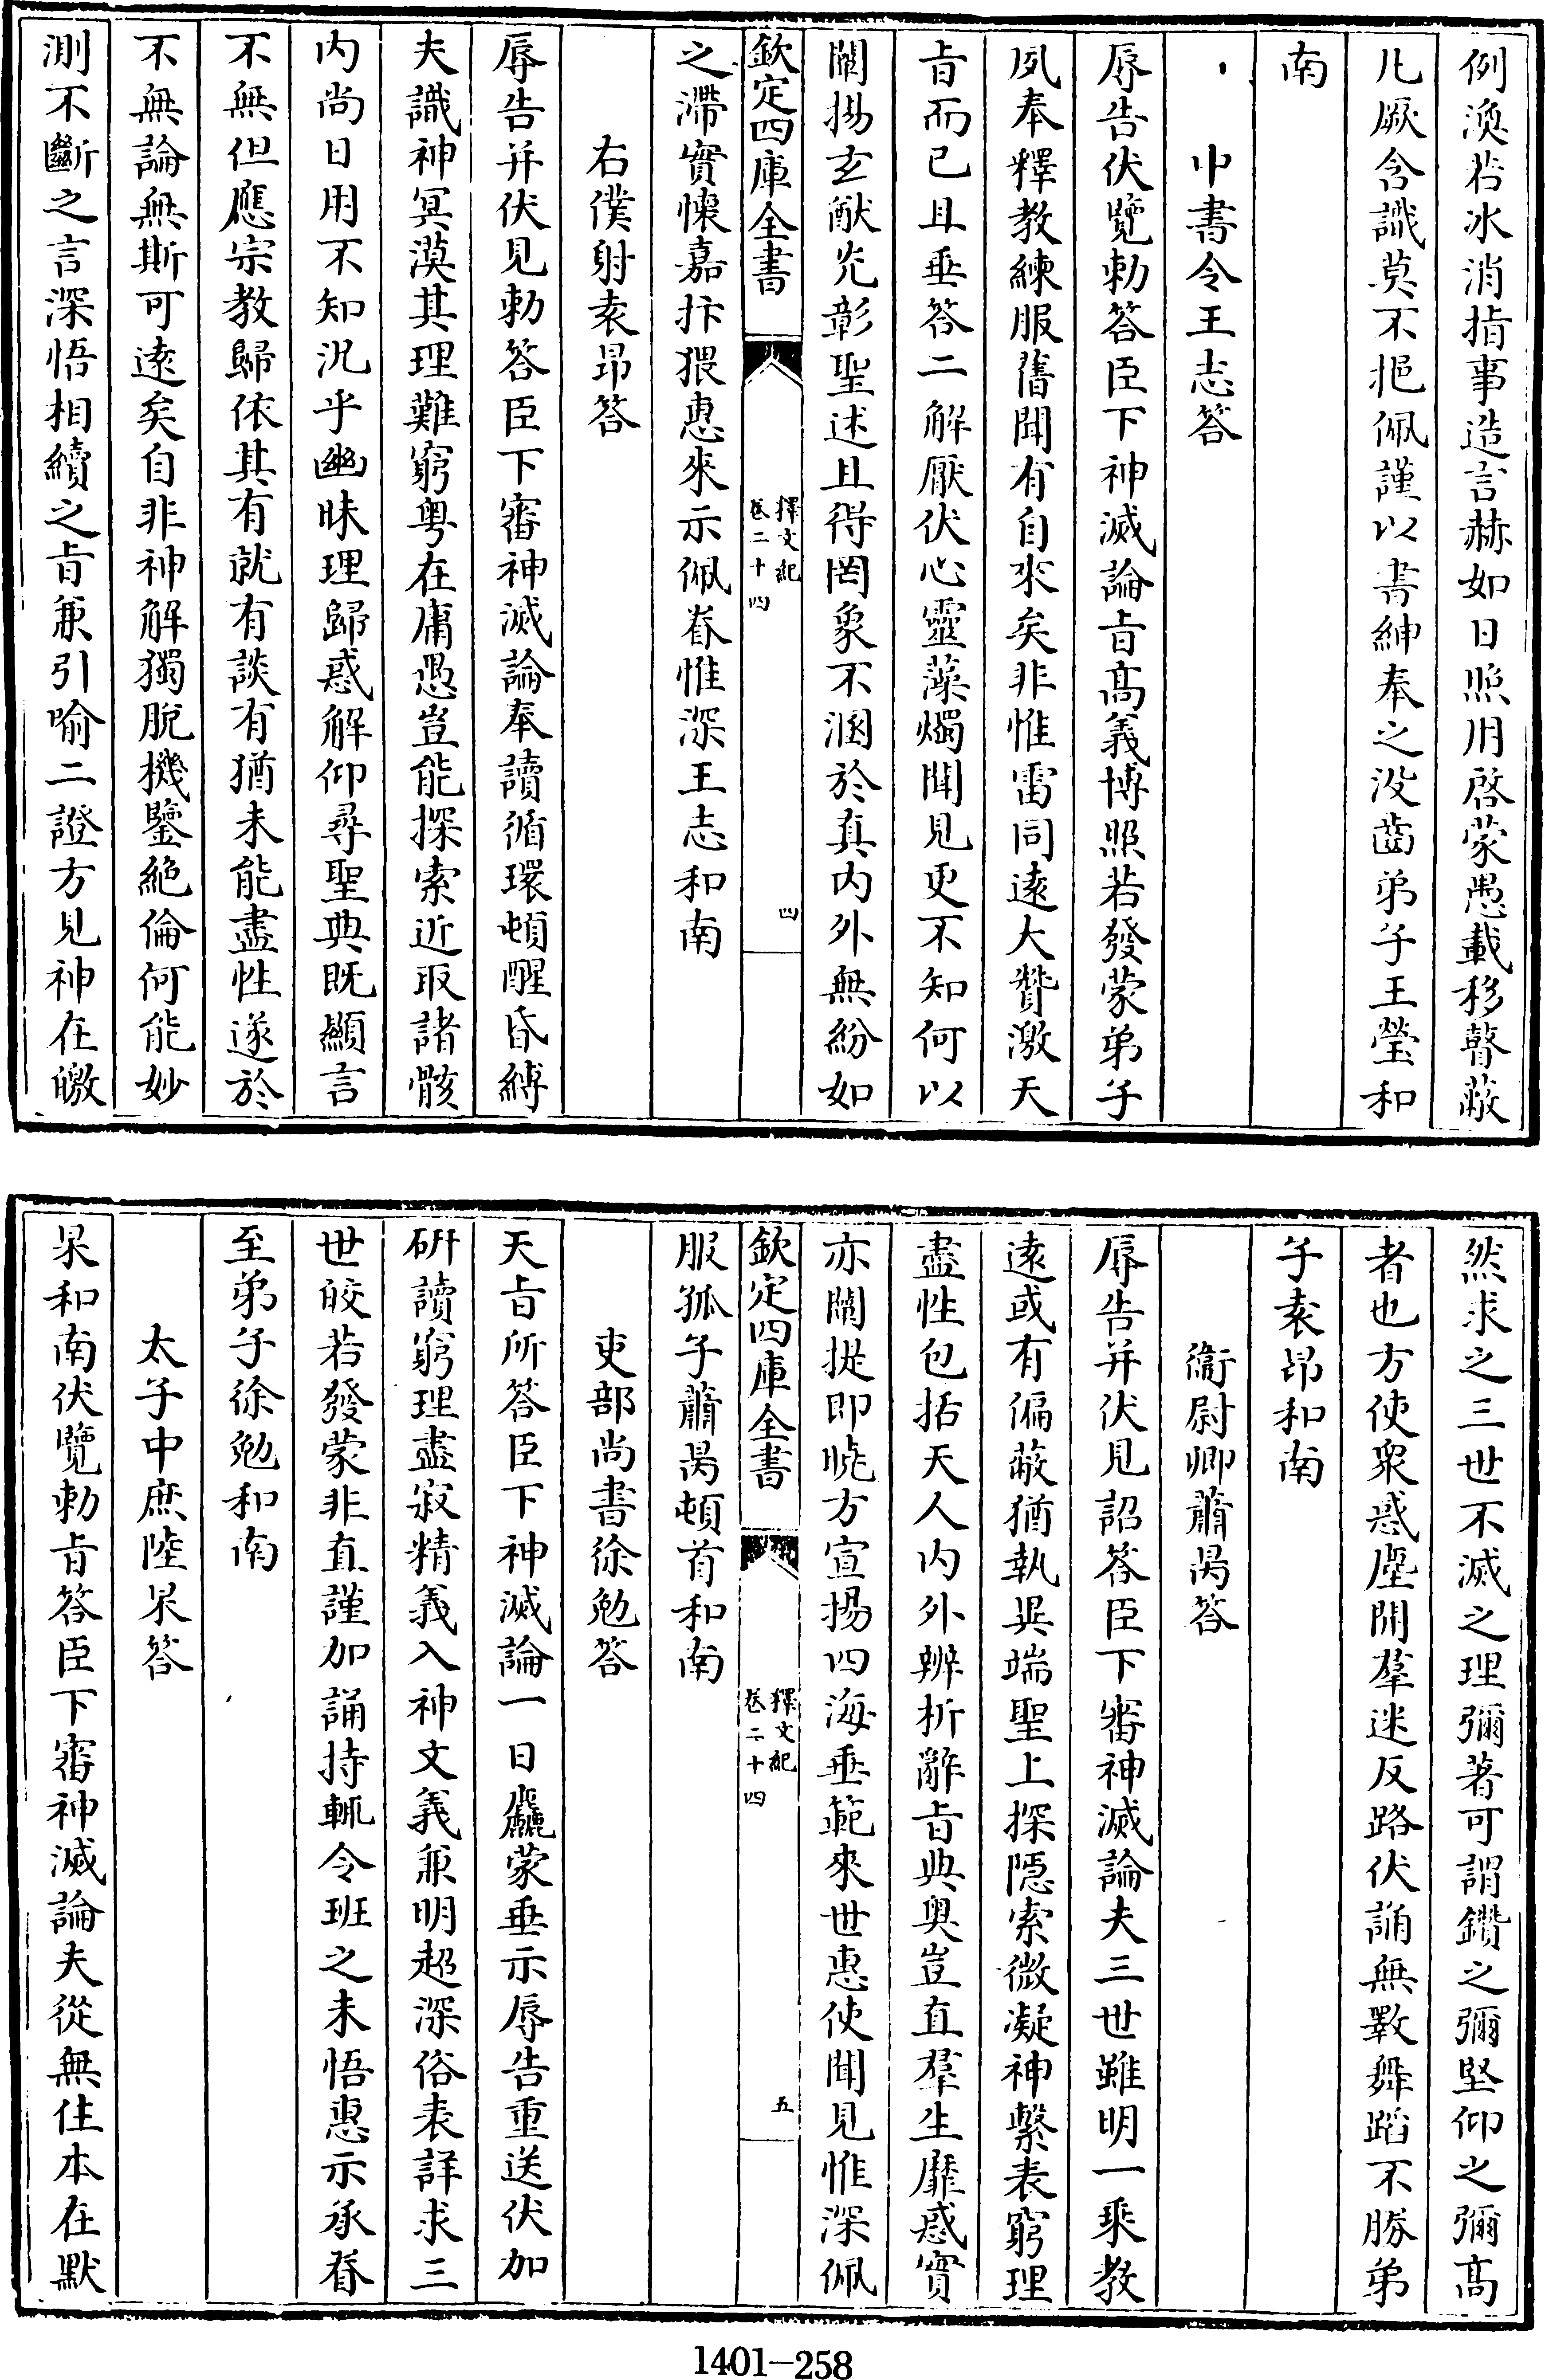 例渙若冰消指事造言赫如日照用啓蒙愚載移瞽蔽
凡厥含識莫不挹佩謹以書紳奉之没齒弟子王瑩和
南
中書令王志答
辱告伏覽勅答臣下神滅論㫖髙義博照若發蒙弟子
夙奉釋教練服舊聞有自來矣非惟雷同逺大贊激天
㫖而已且垂答二解厭伏心靈藻燭聞見更不知何以
闡揚玄猷光彰聖述且得罔象不溷於真内外無紛如
欽定四庫全書
釋文紀
卷二十四
四
之滯實懷嘉抃猥惠來示佩眷惟深王志和南
右僕射袁昂答
辱告并伏見勅答臣下審神滅論奉讀循環頓醒昏縛
夫識神冥漠其理難窮粤在庸愚豈能探索近取諸骸
内尚日用不知況乎幽昧理歸惑解仰尋聖典既顯言
不無但應宗教歸依其有就有談有猶未能盡性遂於
不無論無斯可逺矣自非神解獨脱機鑒絶倫何能妙
測不斷之言深悟相續之㫖兼引喻二證方見神在皦
然求之三世不滅之理彌著可謂鑽之彌堅仰之彌髙
者也方使衆惑塵開羣迷反路伏誦無斁舞蹈不勝弟
子袁昂和南
衞尉卿蕭昺答
辱告并伏見詔答臣下審神滅論夫三世雖明一乘教
逺或有偏蔽猶執異端聖上探隠索微凝神繫表窮理
盡性包括天人内外辨析辭㫖典奥豈直羣生靡惑實
亦闡提即曉方宣揚四海垂範來世惠使聞見惟深佩
欽定四庫全書
釋文紀
卷二十四
五
服孤子蕭昺頓首和南
吏部尚書徐勉答
天㫖所答臣下神滅論一日麤蒙垂示辱告重送伏加
研讀窮理盡寂精義入神文義兼明超深俗表詳求三
世皎若發蒙非直謹加誦持輒令班之未悟惠示承眷
至弟子徐勉和南
太子中庶陸杲答
杲和南伏覽勅㫖答臣下審神滅論夫從無住本在默
1401-258